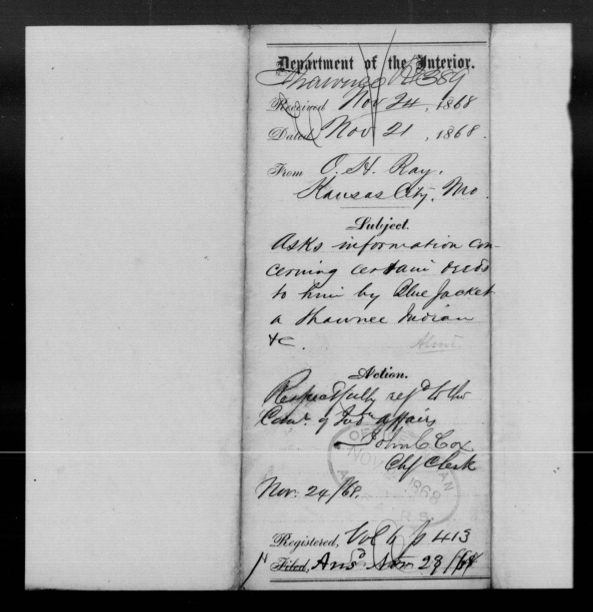 Department of the Interior.
Shawnee R389
Received Nov 24, 1868
Dated Nov 21, 1868.
From O. H. Ray,
Kansas City, Mo.
Subject.
Asks information con-
cerning certain deeds
to him by Blue Jacket
a Shawnee Indian
&c.
Action.
Respectfully refd to the
Comr. of Indn affairs
John C Cox
Chf Clerk
Nov. 24/68.
OFFICE INDIAN
NOV 1868
Registered, Vol 6 p 413
Filed, Ansd Nov 28/68